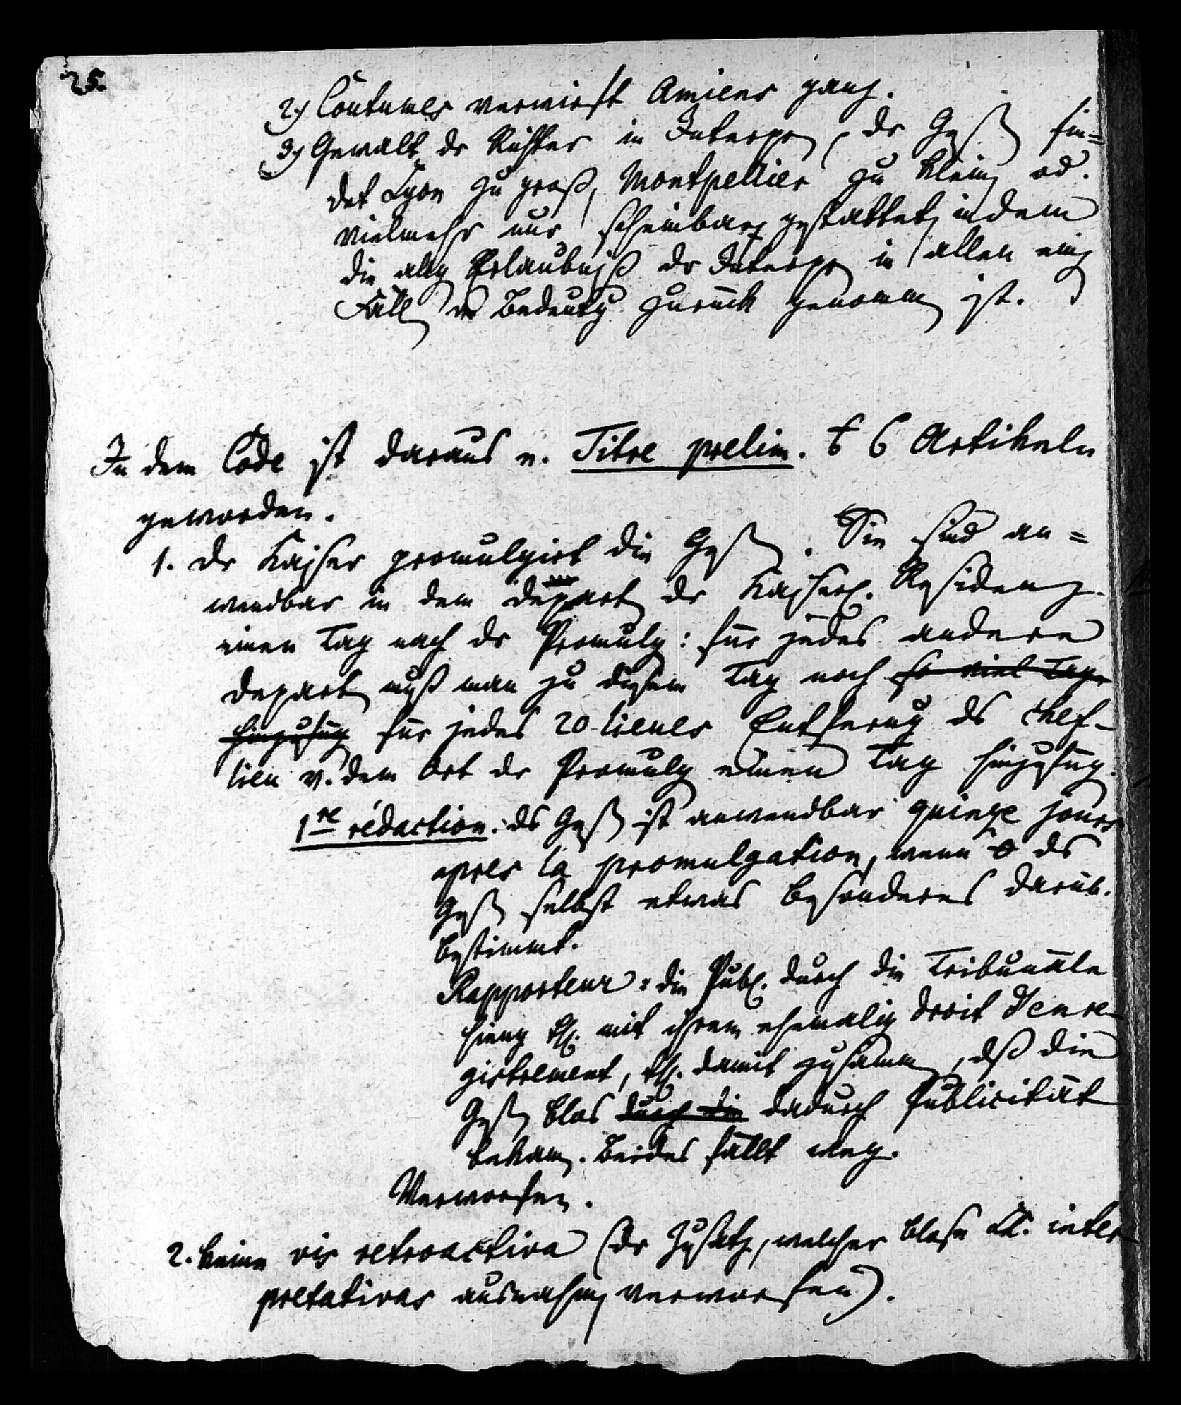 25.
2.) Coutumes verwirft Amiens ganz.
3.) Gewalt dr Richter in Interpr, dr Gesetze fin=
det Lyon zu groß, Montpellier zu klein, od.
vielmehr nur scheinbar gestattet, indem
die allg Erlaubniß dr Interpr in allen einz
Fällen dr Bedeutg zurück genommen ist.
In dem Code ist daraus e. Titre prelim. 6 Artikeln
geworden.
1. dr Kaiser promulgirt die Gesetze. Sie sind an=
wendbar in dem depart dr Kaiserl. Residenz.
einen Tag nach dr Promulg: für jedes andere
depart muß man zu diesem Tag noch so viel Tage
hinzufüg für jedes 20 lieues Entfernug ds chef-
lieu v. dem Ort dr Promulg einen Tag hinzufüg.
1re rédaction: ds Gesetz ist anwendbar quinze jours
apres la promulgation, wenn ds
Gesetz selbst etwas besonderes darüb.
bestimmt.
Rapporteur: die Publ. durch die Tribunäle
hieng mit ihrem ehemalig droit d'enre-
gistrement, damit zusamm, dß die
Gesetze blos durch die dadurch Publicität
bekam. Beides fällt weg.
Verworfen.
2. keine vis retroactiva (dr Zusatz, welcher blose LL. inter-
pretativas ausnahm, verworfen).